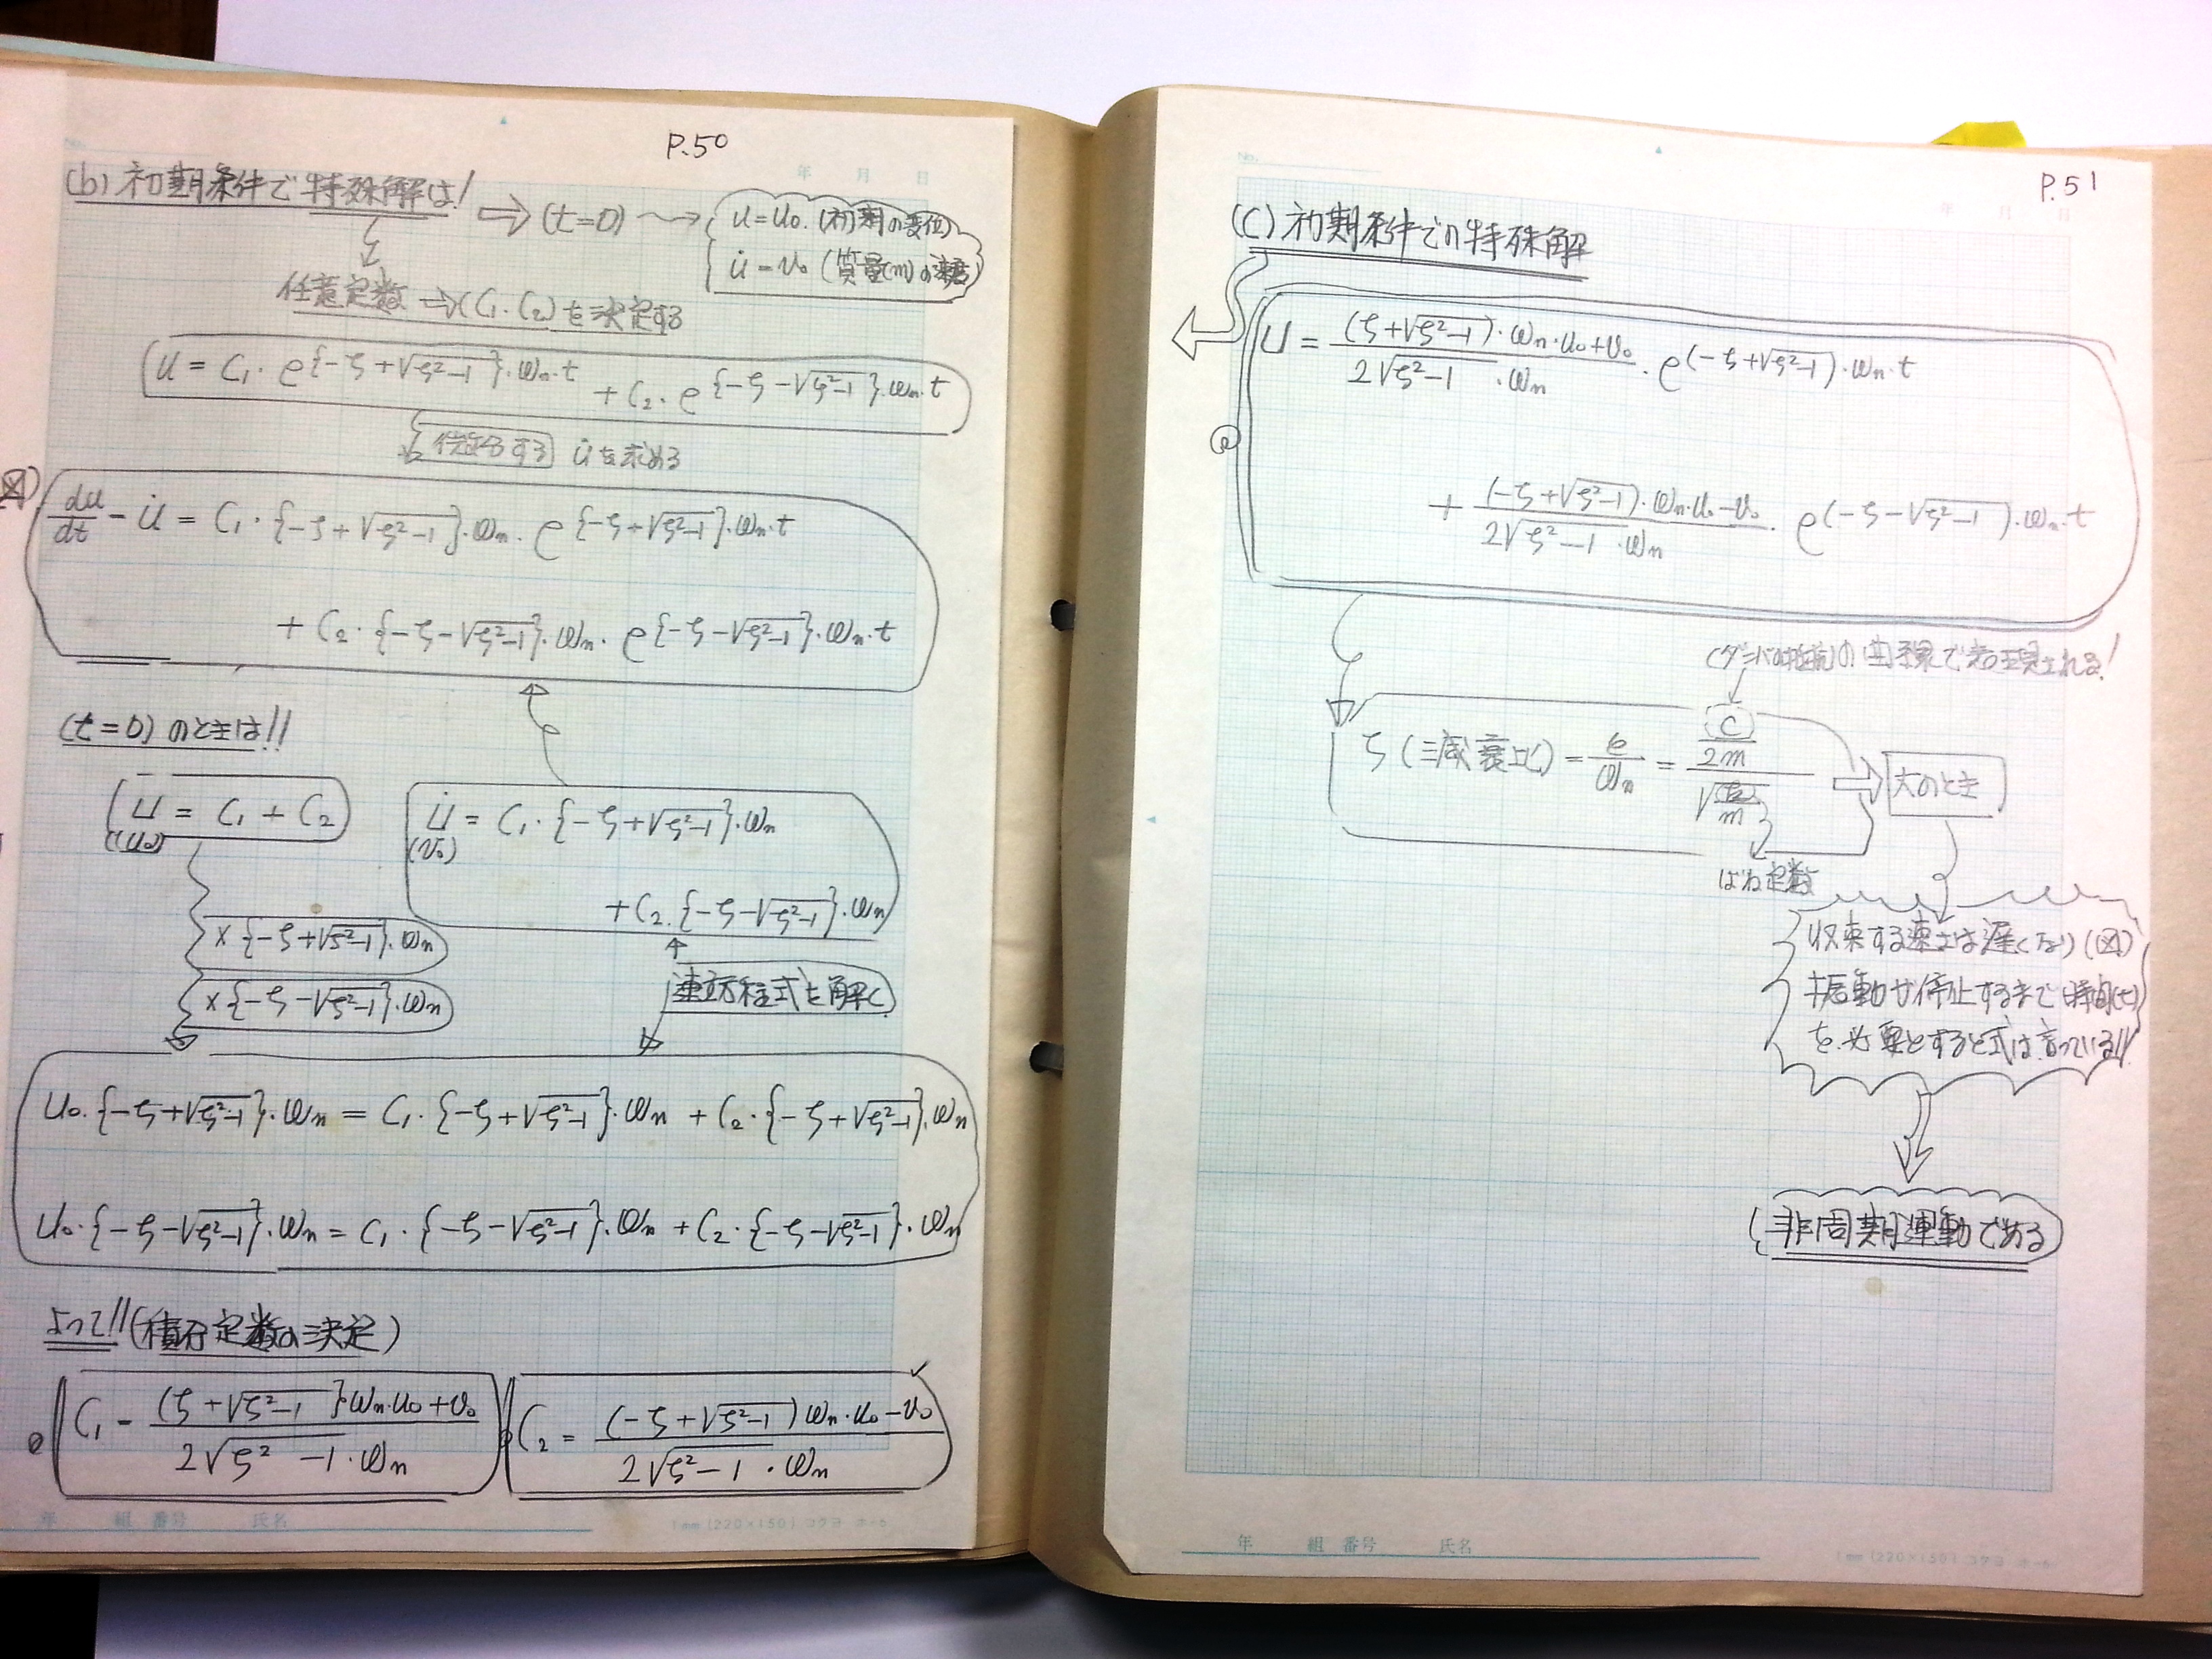 P.50
年 月 日
(b) 初期条件で特殊解は! ⇒ (t=0) → u=u₀. (初期の変位)
u̇=v₀ (質量(m)の速度)
任意定数 ⇒ (C₁. C₂) を決定する
u = C₁・e{-ζ+√ζ²-1}・ωn・t + C₂・e{-ζ-√ζ²-1}・ωn・t
微分する u̇を求める
du/dt = u̇ = C₁・{-ζ+√ζ²-1}・ωn・e{-ζ+√ζ²-1}・ωn・t
+ C₂・{-ζ-√ζ²-1}・ωn・e{-ζ-√ζ²-1}・ωn・t
(t=0) のときは!!
u = C₁ + C₂
(u₀)
u̇ = C₁・{-ζ+√ζ²-1}・ωn
(v₀)
+C₂・{-ζ-√ζ²-1}・ωn
×{-ζ+√ζ²-1}・ωn
×{-ζ-√ζ²-1}・ωn
連立方程式を解く
u₀・{-ζ+√ζ²-1}・ωn = C₁・{-ζ+√ζ²-1}・ωn + C₂・{-ζ+√ζ²-1}・ωn
u₀・{-ζ-√ζ²-1}・ωn = C₁・{-ζ-√ζ²-1}・ωn + C₂・{-ζ-√ζ²-1}・ωn
よって!! (積分定数の決定)
C₁ = (ζ+√ζ²-1}・ωn・u₀+v₀ / 2√ζ²-1・ωn
C₂ = (-ζ+√ζ²-1)ωn・u₀-v₀ / 2√ζ²-1・ωn
年 組 番号 氏名
1mm (220×150) コクヨ ホ-6
No.
P.51
月 日
(C) 初期条件での特殊解
u = (ζ+√ζ²-1)・ωn・u₀+v₀ / 2√ζ²-1・ωn ・e(-ζ+√ζ²-1)・ωn・t
+ (-ζ+√ζ²-1)・ωn・u₀-v₀ / 2√ζ²-1・ωn ・e(-ζ-√ζ²-1)・ωn・t
(ダンパの抵抗)の曲線で表現される!
ζ (減衰比) = e/ωn = (C)/2m / √(k)/m ⇒ 大のとき
ばね定数
収束する速さは遅くなり (図)
振動が停止するまで時間(t)
を必要とすると式は言っている!!
非周期運動である
年 組 番号 氏名
1mm (220×150) コクヨ ホ-6